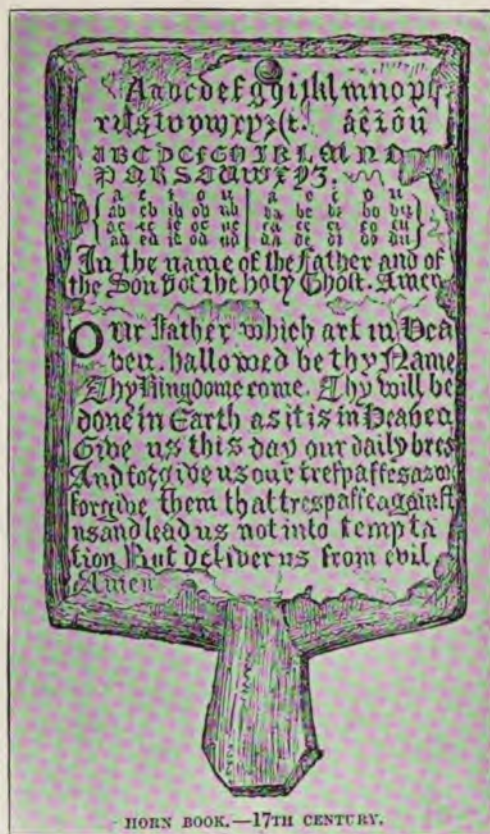 Aabcdefgghijklmnopq
rsstuvwxyz&t. áêîôû
ABCDEFGHIKLMNO
PQRSTUVWXYZ.
a e i o u | a e i o u
ab eb ib ob ub | ba be bi bo bu
ac ec ic oc uc | ca ce ci co cu
ad ed id od ud | da de di do du
In the name of the Father and of
the Son & of the holy Ghoſt. Amen
Our Father which art in Hea
ven. hallowed be thy Name
Thy Kingdome come. Thy will be
done in Earth as it is in Heaven
Give us this day our daily brea
And forgive us our treſpaſſes as we
forgive them that trespaſſe againſt
us and lead us not into tempta
tion But deliver us from evil
Amen
HORN BOOK.—17TH CENTURY.